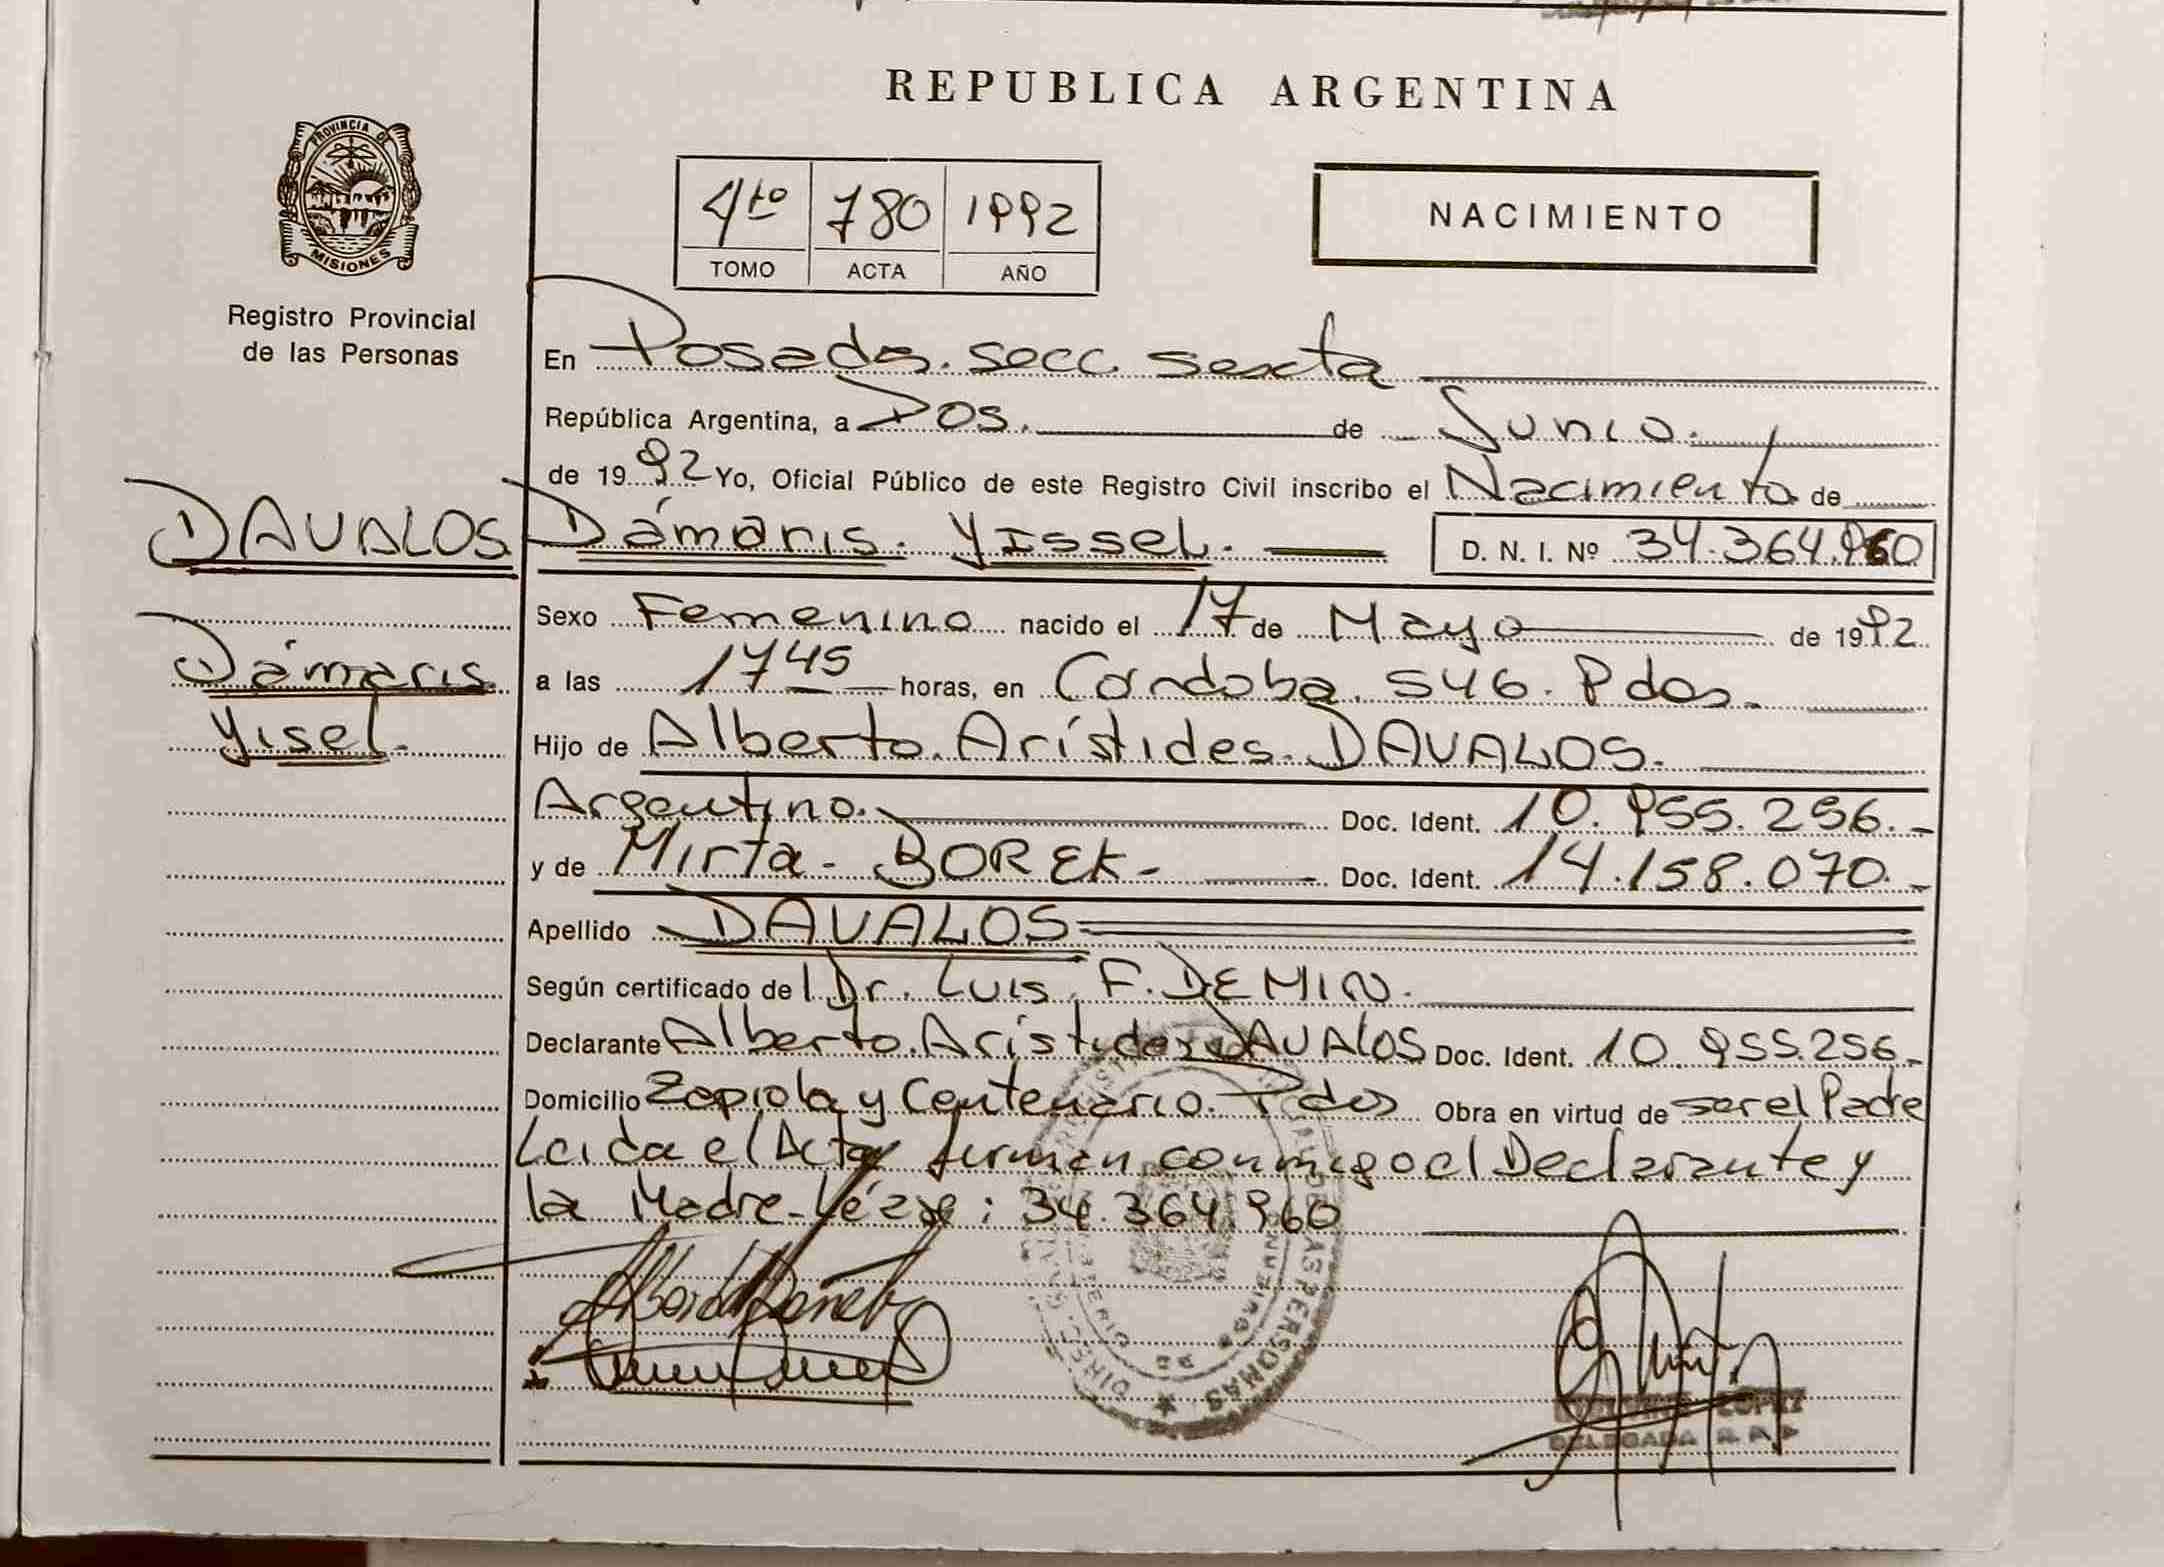 REPUBLICA ARGENTINA
PROVINCIA DE
MISIONES
Registro Provincial
de las Personas
4to 780 1992
TOMO ACTA AÑO
NACIMIENTO
En Posadas. secc. sexta
República Argentina, a Dos. de Junio.
de 1992 Yo, Oficial Público de este Registro Civil inscribo el Nacimiento de
DAVALOS Dámaris. Yissel. D. N. I. Nº 34.364.960
Sexo Femenino nacido el 17 de Mayo de 1992
Dámaris a las 17 45 horas, en Cordoba. 546. Pdas.
Yisel. Hijo de Alberto. Arístides. DAVALOS.
Argentino. Doc. Ident. 10.955.256.-
y de Mirta - BOREK - Doc. Ident. 14.158.070.-
Apellido DAVALOS
Según certificado del Dr. Luis. F. DEMIN.
Declarante Alberto. Arístides DAVALOS Doc. Ident. 10.955.256.-
Domicilio Zapiola y Centenario. Pdas Obra en virtud de ser el Padre
Leida el Acta, firman conmigo el Declarante y
la Madre - Léase: 34.364.960
PERSONAS
LOPEZ
DELEGADA R. P.